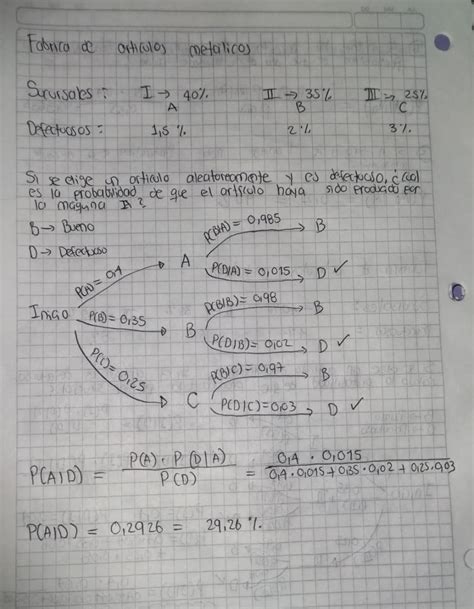 Fabrica de articulos metalicos
Sucursales: I → 40% II → 35% III → 25%
A B C
Defectuosos: 1,5 % 2 % 3 %
Si se elige un articulo aleatoreamente y es defectuoso, ¿cual
es la probabilidad de que el articulo haya sido producido por
la maquina A?
B → Bueno
D → Defectuoso
P(B/A) = 0,985 B
P(A) = 0,4 A
P(D/A) = 0,015 D ✓
P(B/B) = 0,98 B
Inicio P(B) = 0,35 B
P(D/B) = 0,02 D ✓
P(B/C) = 0,97 B
P(C) = 0,25 C
P(D/C) = 0,03 D ✓
P(A|D) = P(A) · P(D|A) / P(D) = 0,4 · 0,015 / 0,4 · 0,015 + 0,35 · 0,02 + 0,25 · 0,03
P(A|D) = 0,2926 = 29,26 %